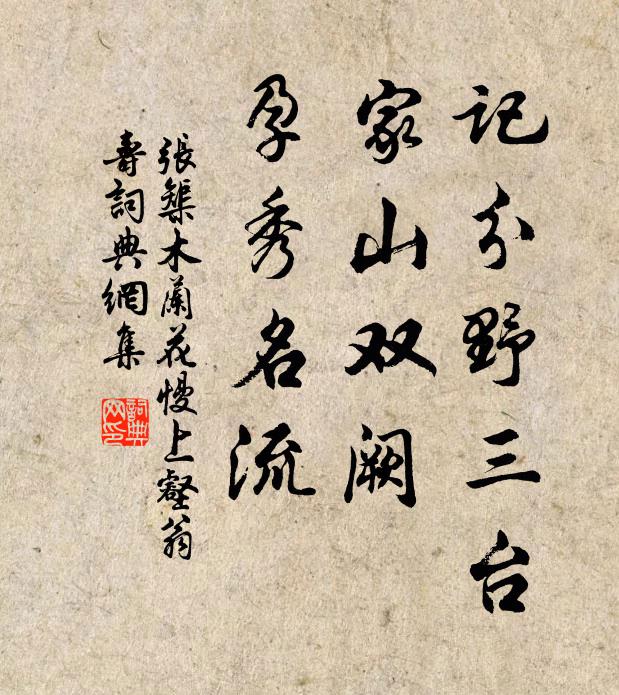 记分野三台
家山双阙
孕秀名流
張榘木蘭花慢上壑翁
壽詞典網集
詞典网印